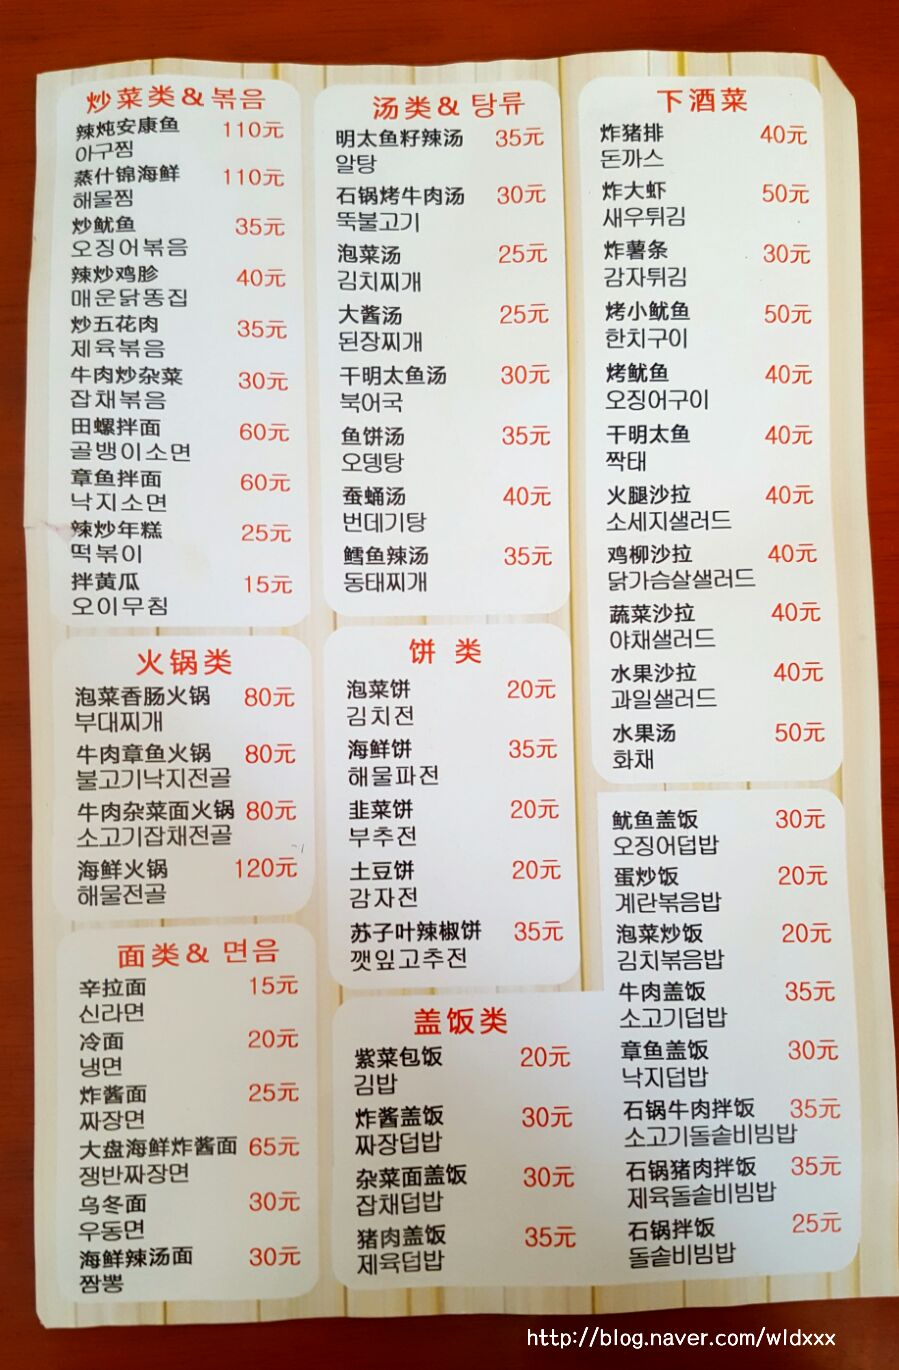 炒菜类 & 볶음
辣炖安康鱼 110元
아구찜
蒸什锦海鲜 110元
해물찜
炒鱿鱼 35元
오징어볶음
辣炒鸡胗 40元
매운닭똥집
炒五花肉 35元
제육볶음
牛肉炒杂菜 30元
잡채볶음
田螺拌面 60元
골뱅이소면
章鱼拌面 60元
낙지소면
辣炒年糕 25元
떡볶이
拌黄瓜 15元
오이무침
火锅类
泡菜香肠火锅 80元
부대찌개
牛肉章鱼火锅 80元
불고기낙지전골
牛肉杂菜面火锅 80元
소고기잡채전골
海鲜火锅 120元
해물전골
面类 & 면음
辛拉面 15元
신라면
冷面 20元
냉면
炸酱面 25元
짜장면
大盘海鲜炸酱面 65元
쟁반짜장면
乌冬面 30元
우동면
海鲜辣汤面 30元
짬뽕
汤类 & 탕류
明太鱼籽辣汤 35元
알탕
石锅烤牛肉汤 30元
뚝불고기
泡菜汤 25元
김치찌개
大酱汤 25元
된장찌개
干明太鱼汤 30元
북어국
鱼饼汤 35元
오뎅탕
蚕蛹汤 40元
번데기탕
鳕鱼辣汤 35元
동태찌개
饼类
泡菜饼 20元
김치전
海鲜饼 35元
해물파전
韭菜饼 20元
부추전
土豆饼 20元
감자전
苏子叶辣椒饼 35元
깻잎고추전
盖饭类
紫菜包饭 20元
김밥
炸酱盖饭 30元
짜장덥밥
杂菜面盖饭 30元
잡채덥밥
猪肉盖饭 35元
제육덥밥
下酒菜
炸猪排 40元
돈까스
炸大虾 50元
새우튀김
炸薯条 30元
감자튀김
烤小鱿鱼 50元
한치구이
烤鱿鱼 40元
오징어구이
干明太鱼 40元
짝태
火腿沙拉 40元
소세지샐러드
鸡柳沙拉 40元
닭가슴살샐러드
蔬菜沙拉 40元
야채샐러드
水果沙拉 40元
과일샐러드
水果汤 50元
화채
鱿鱼盖饭 30元
오징어덥밥
蛋炒饭 20元
계란볶음밥
泡菜炒饭 20元
김치볶음밥
牛肉盖饭 35元
소고기덥밥
章鱼盖饭 30元
낙지덥밥
石锅牛肉拌饭 35元
소고기돌솥비빔밥
石锅猪肉拌饭 35元
제육돌솥비빔밥
石锅拌饭 25元
돌솥비빔밥
http://blog.naver.com/wldxxx